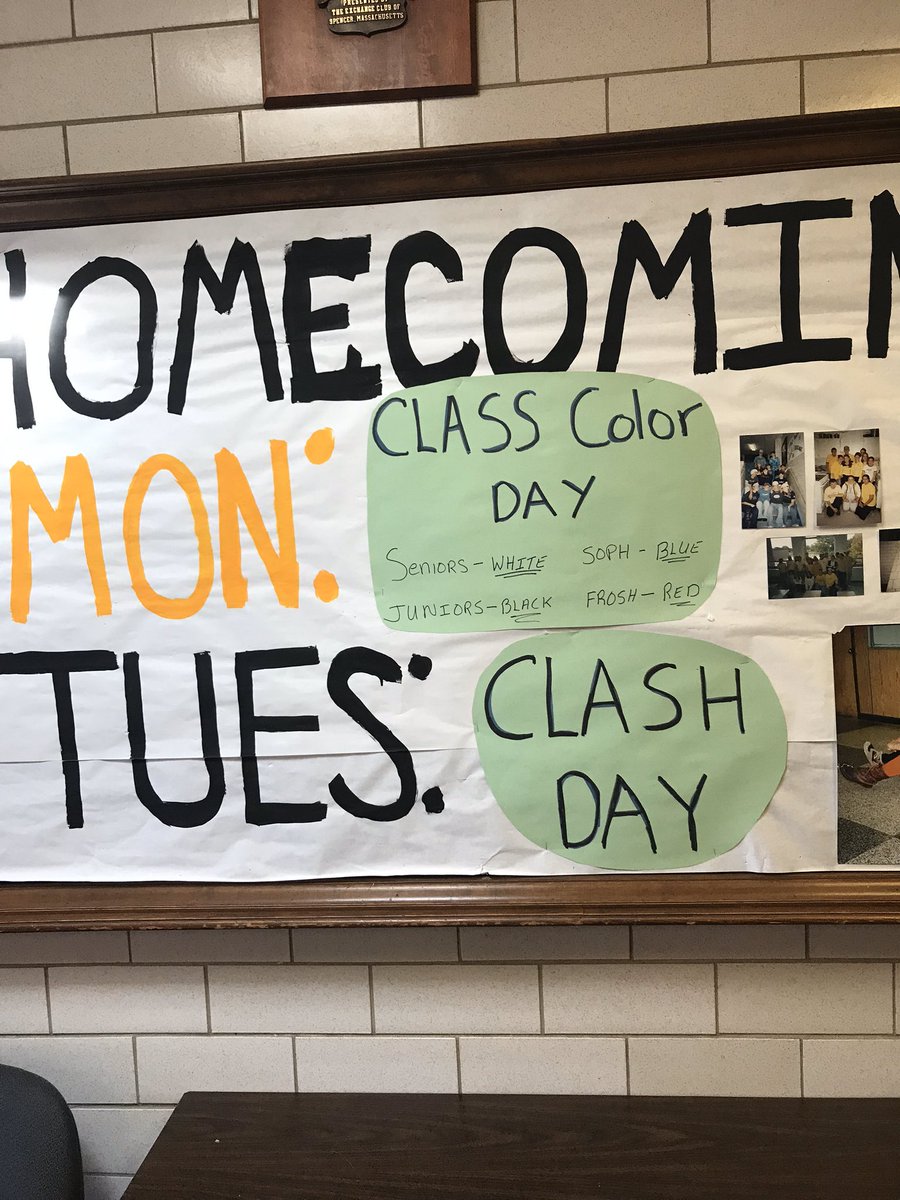 PRESENTED BY
THE EXCHANGE CLUB OF
SPENCER, MASSACHUSETTS
HOMECOMIN
MON:
CLASS Color
DAY
SENIORS - WHITE
SOPH - BLUE
JUNIORS - BLACK
FROSH - RED
TUES:
CLASH
DAY